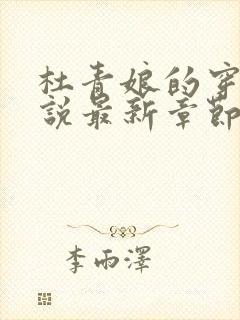 杜青娘的穿
說最新章節
李雨澤